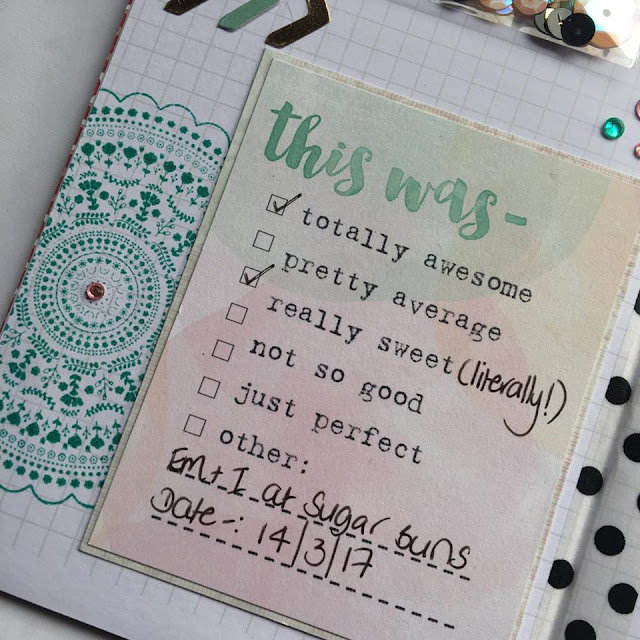 this was-
totally awesome
pretty average
really sweet (literally!)
not so good
just perfect
other:
Em + I at Sugar Buns
Date -: 14/3/17